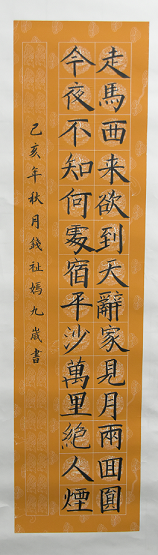 走馬西来欲到天辭家見月兩回圓
今夜不知何處宿平沙萬里絕人煙
己亥年秋月錢祉嫣九歲書